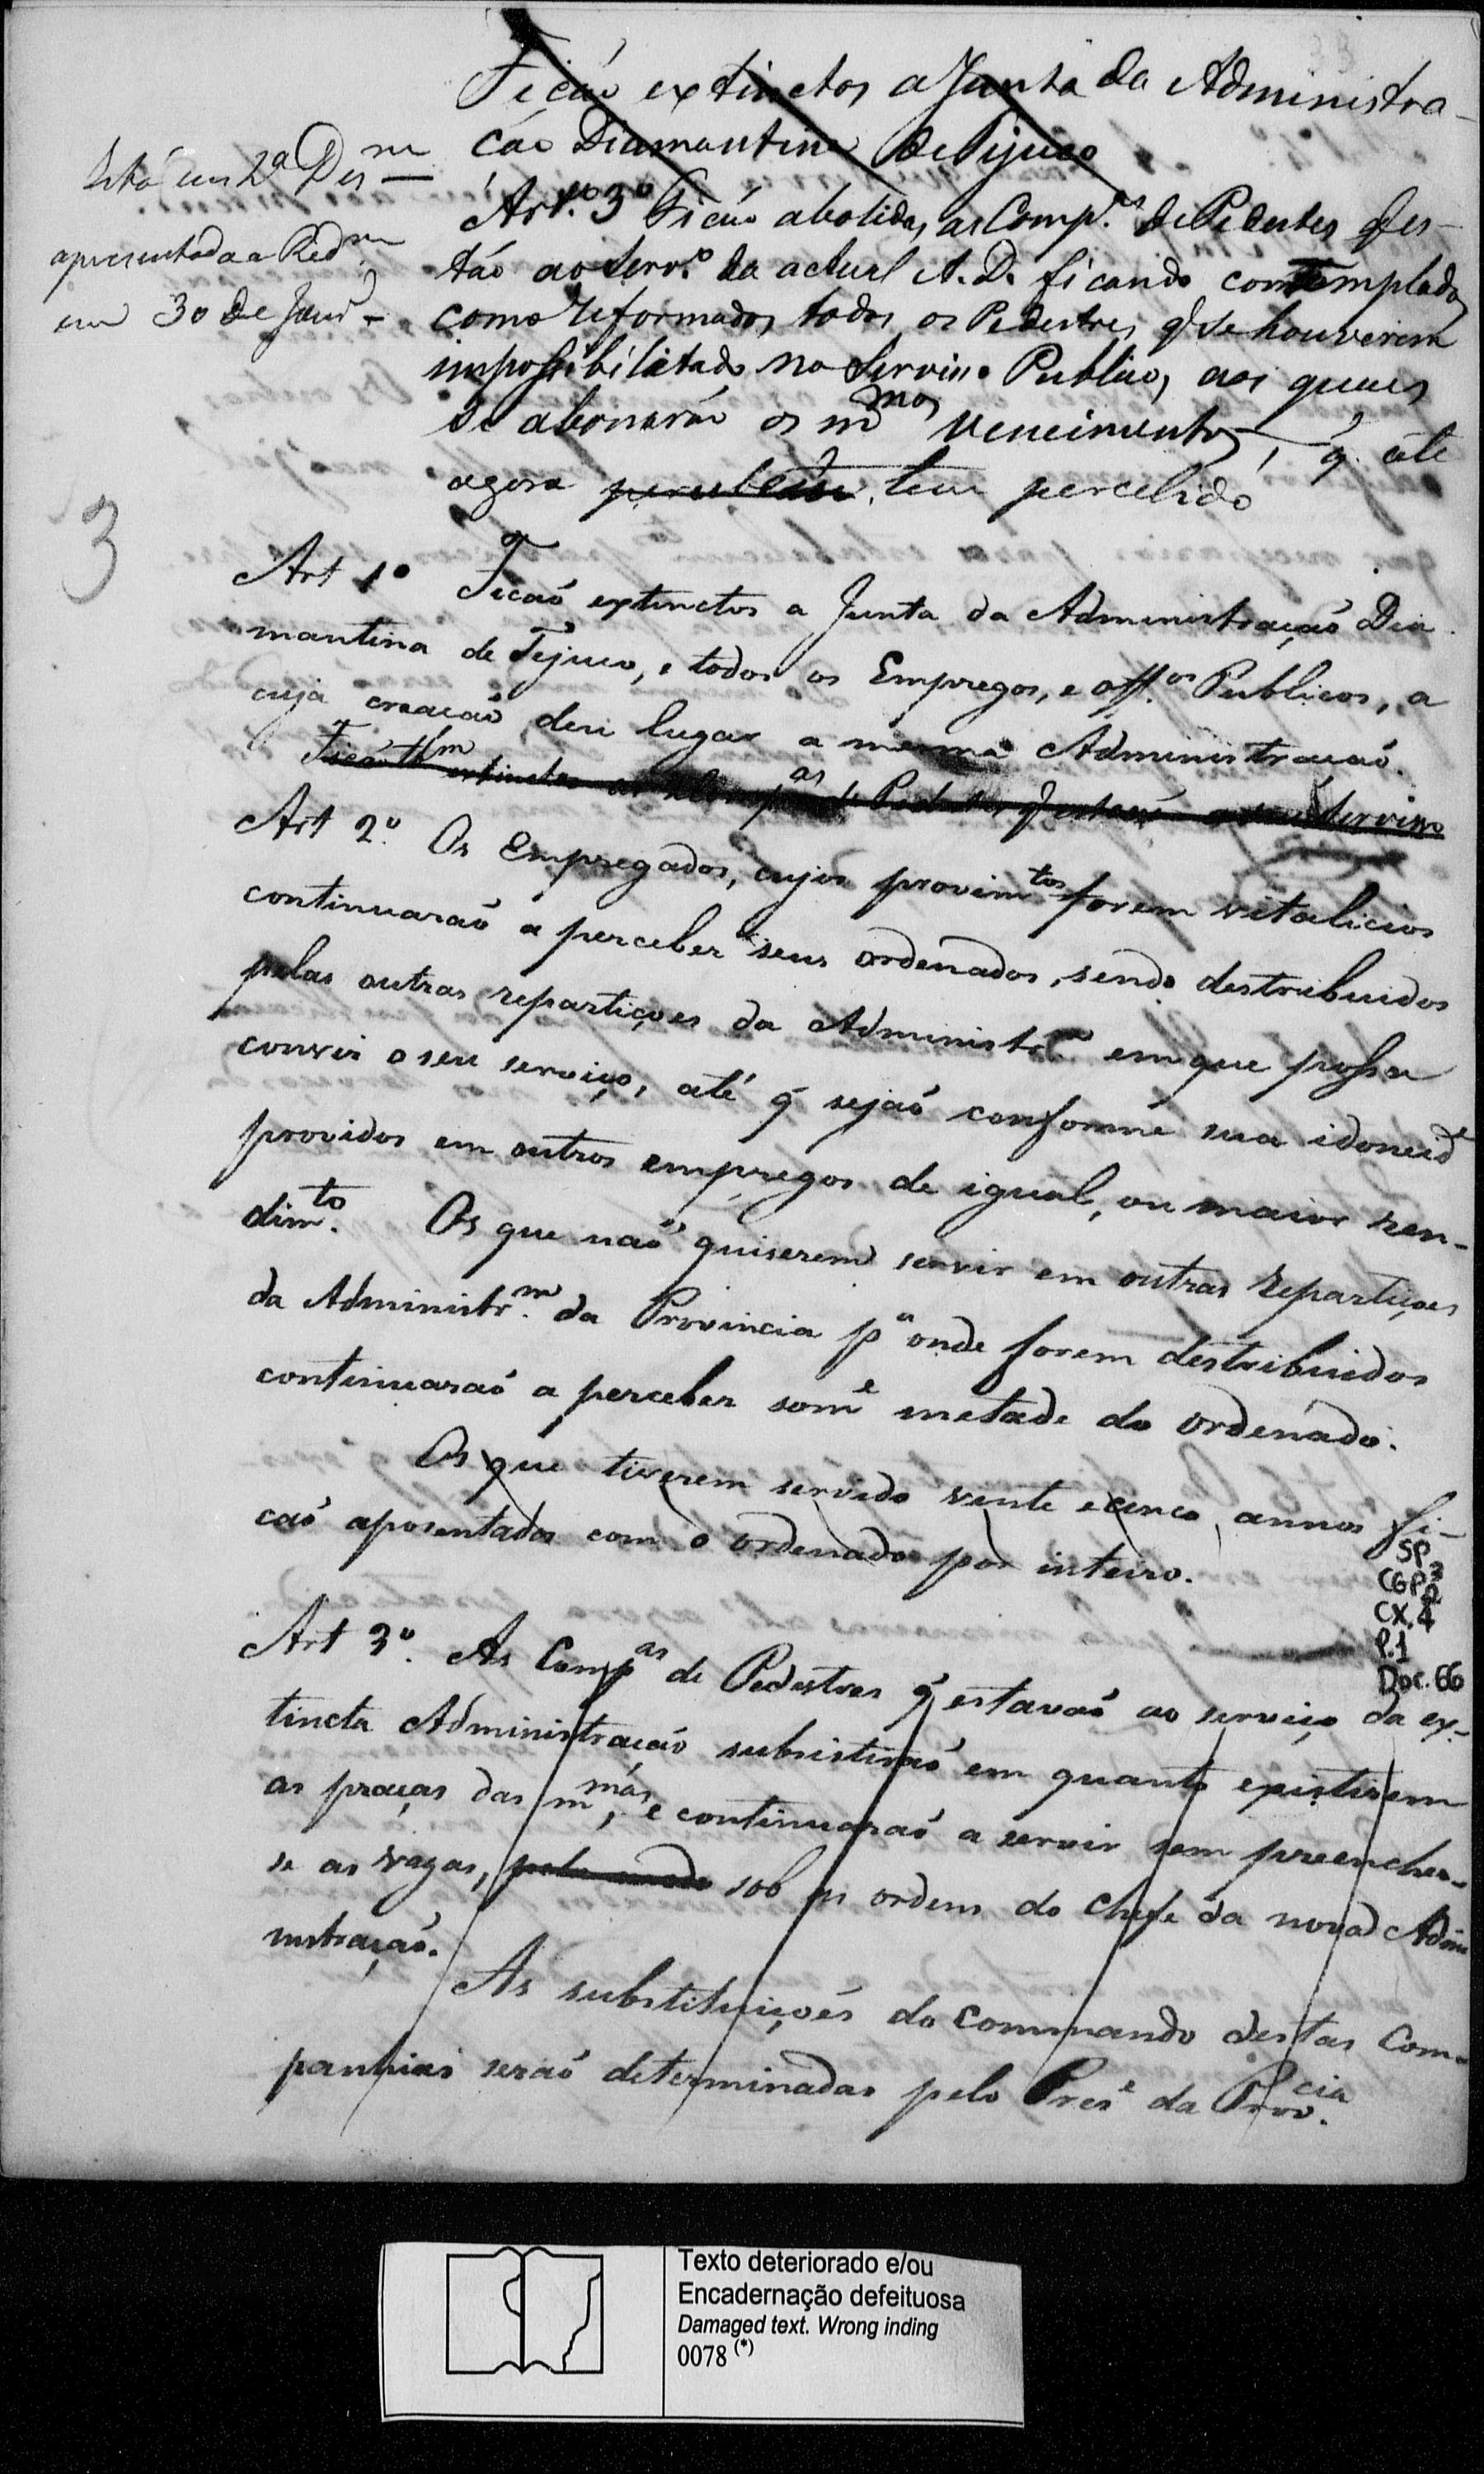 Ficão extinctos a Junta da Administra-
ção Diamantina de Tijuco
Está em 2ª Des
apresentada a Redm
em 30 de Janro
Art.º 3º Ficão abolidas as Comp.as de Pedestes q es-
tão ao Serv.º da actual A. D. ficando contemplados
como reformados todos os Pedestres q se houverem
impossibilitado no Serviço Publico, aos quaes
se abonarão os mmos vencimentos, q. até
agora percebião, tem percebido
3
Art 1º Ficaõ extinctos a Junta da Administraçaõ Dia-
mantina de Tejuco, e todos os Empregos, e off.os Publicos, a
cuja creacaõ deu lugar a mesma Administraçaõ.
Ficão tbm extinctas as Comp.as de Pedestes q estavão a seu Serviço
Art 2º. Os Empregados, cujos provimtos forem vitalicios
continuaraõ a perceber seus ordenados, sendo destribuidos
pelas outras repartiçoes da Administr.m em que possa
convir o seu serviço, até q̃ sejaõ conforme sua idoneide
providos em outros empregos de igual, ou maior ren-
dimto. Os que naõ quiserem servir em outras repartiçoes
da Administr.m da Provincia pa onde forem destribuidos
continuaraõ a perceber some metade do ordenado.
Os que tiverem servido vente e cinco annos fi-
caõ aposentados com o ordenado por inteiro.
SP
CGP2
CX.4
P.1
Doc. 66
Art 3º. As Compas de Pedestres q̃ estavaõ ao serviço da ex-
tincta Administraçaõ subsistiraõ em quanto existirem
as praças das mmas, e continuaraõ a servir sem preencher-
se as vagas, sob as ordens do chefe da nova Admi
nistraçaõ.
As substituiçoẽs do Commando destas Com-
panhias seraõ determinadas pelo Prese da Provcia.
Texto deteriorado e/ou
Encadernação defeituosa
Damaged text. Wrong inding
0078 (*)